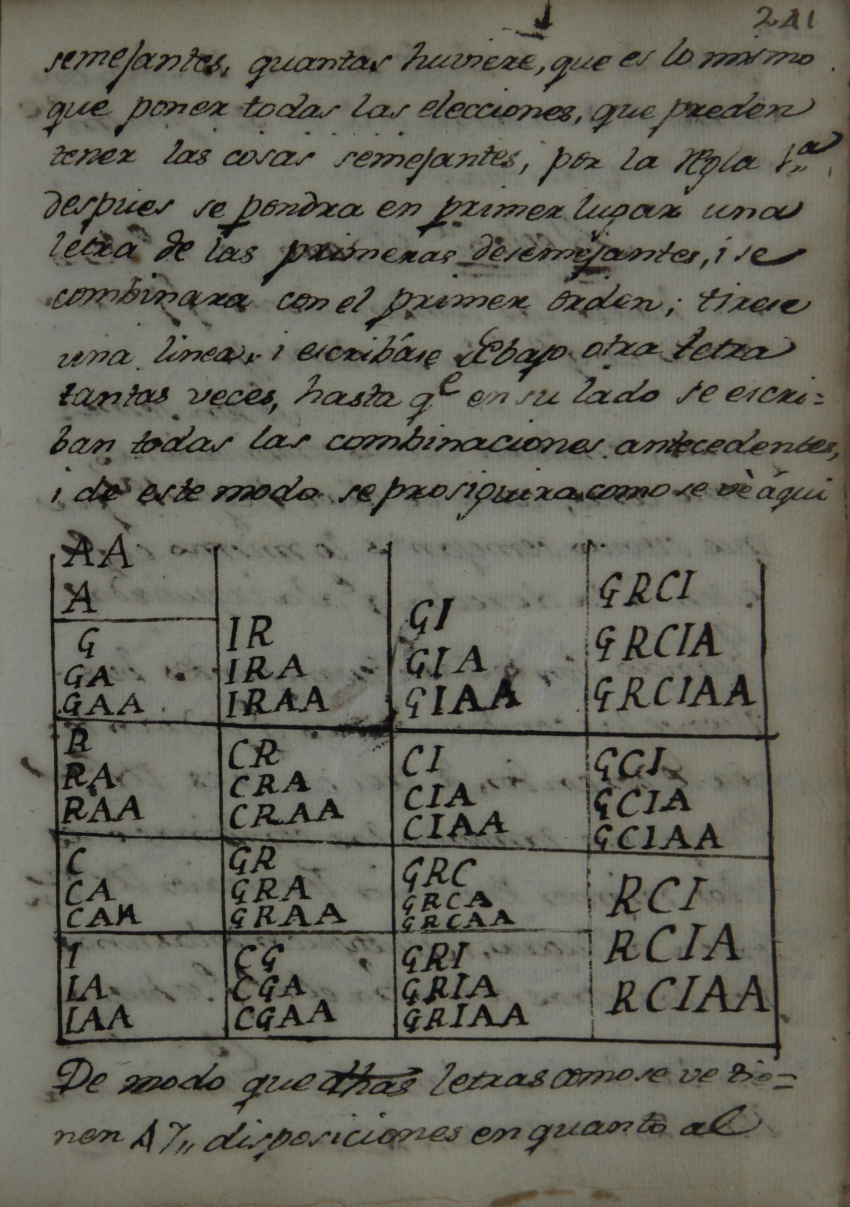 241
semejantes, quantas huviere, que es lo mismo
que poner todas las elecciones, que pueden
tener las cosas semejantes, por la Regla 1,,ª
despues se pondra en primer lugar una
letra de las primeras desemejantes, i se
combinara con el primer orden; tirese
una linea, i escribáse debajo otra letra
tantas veces, hasta qᵉ en su lado se escri=
ban todas las combinaciones antecedentes,
i de este modo se prosiguira como se vè áqui
AA
A
G
GA
GAA
R
RA
RAA
C
CA
CAA
I
IA
IAA
IR
IRA
IRAA
CR
CRA
CRAA
GR
GRA
GRAA
CG
CGA
CGAA
GI
GIA
GIAA
CI
CIA
CIAA
GRC
GRCA
GRCAA
GRI
GRIA
GRIAA
GRCI
GRCIA
GRCIAA
GCI
GCIA
GCIAA
RCI
RCIA
RCIAA
De modo que dhas letras como se ve tie=
nen 47,, disposiciones en quanto al